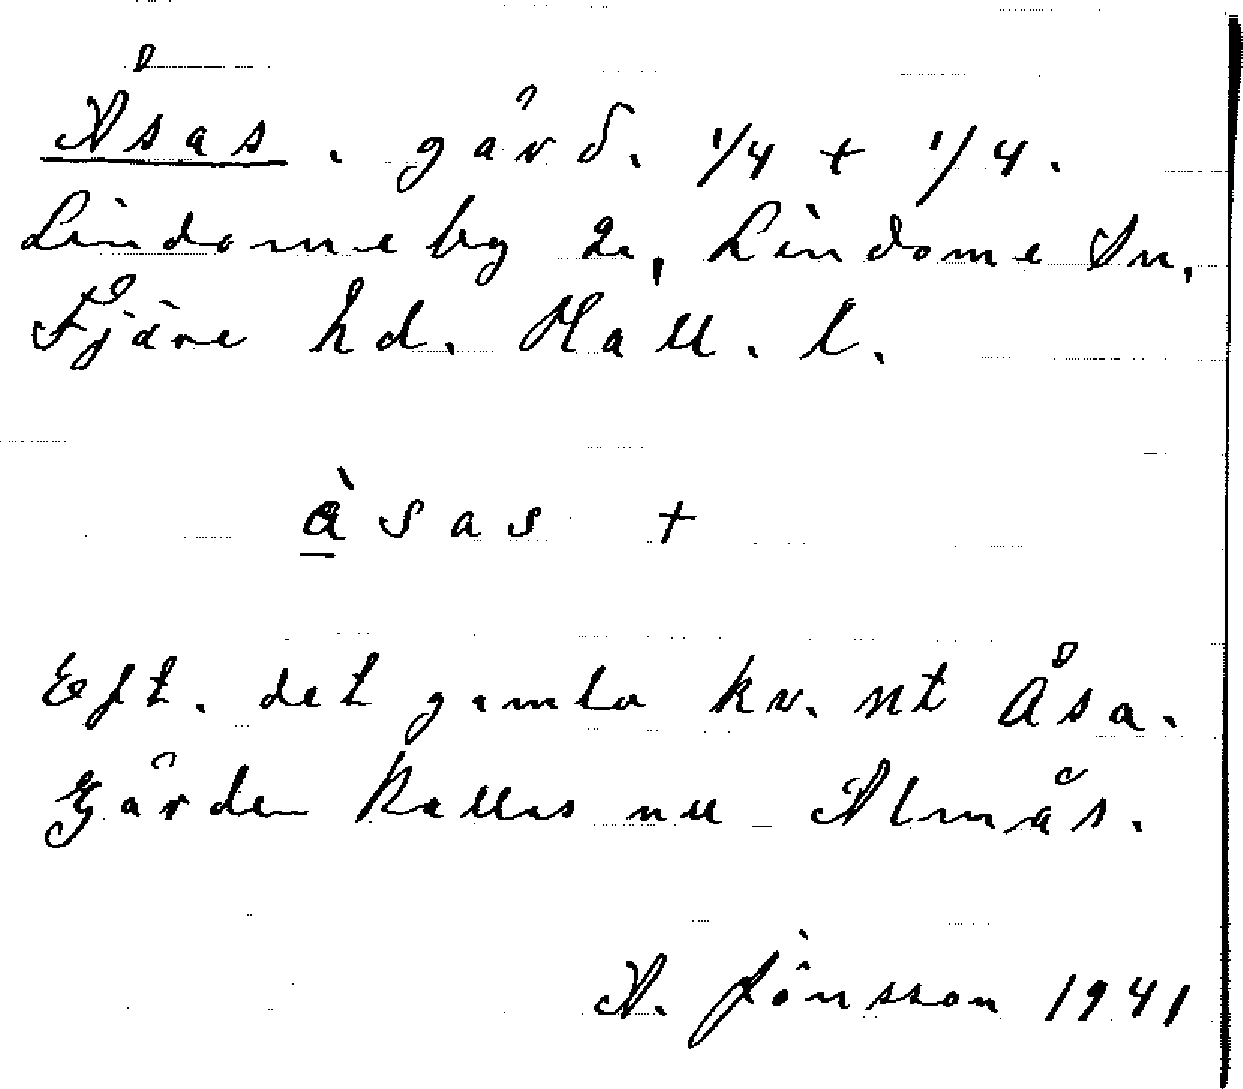 Åsas. gård. 1/4 + 1/4.
Lindome by 2, Lindome sn,
Fjäre hd. Hall. l.
åsas +
Eft. det gamla kv. nt Åsa.
Gården kallas nu Almås.
A. Jönsson 1941